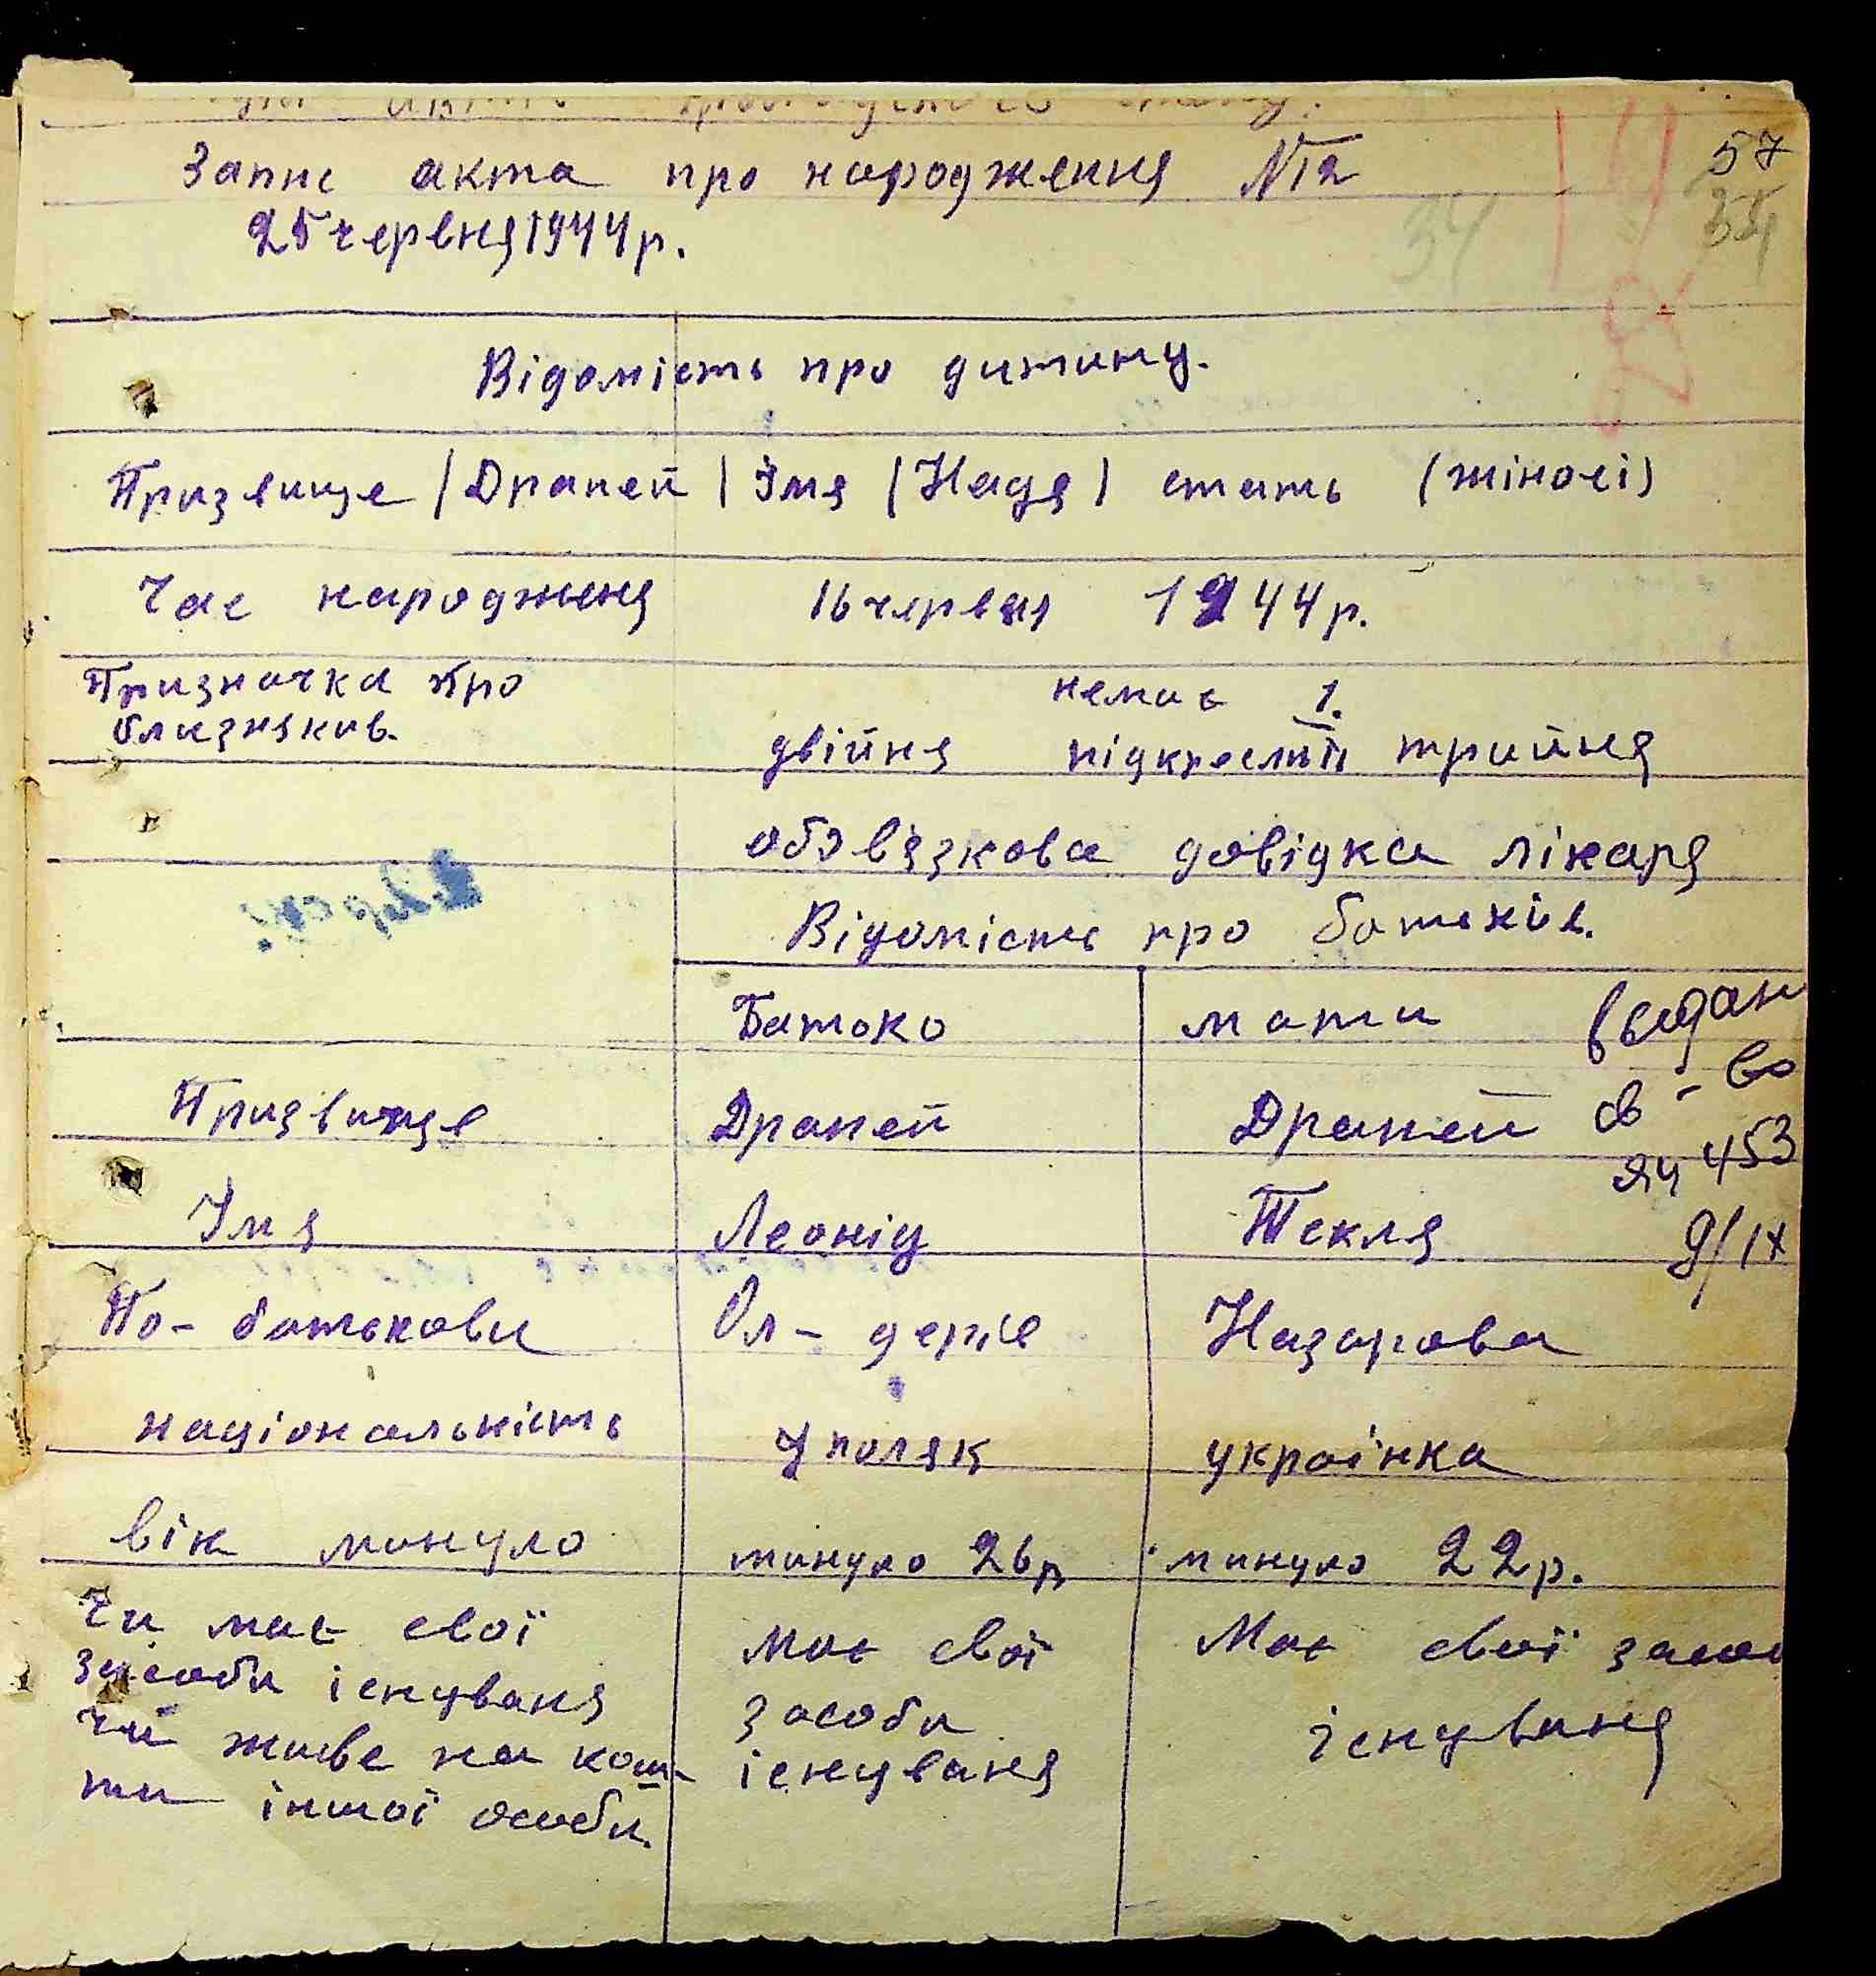 Запис акта про народження №12
57
34
34
25 червня 1944 р.
Відомість про дитину.
Призвище (Драпей) Імя (Надя) стать (жіночі)
Час народженя 16 червня 1944 р.
Призначка про близняків.
немає 1.
двійня підкреслить трийня
обовязкова довідка лікаря
Відомість про батьків.
Батоко мати
Призвище Драпей Драпей
Імя Леонід Текля
По-батькови Ол-дерів Назарова
національність поляк українка
вік минуло минуло 26р минуло 22р.
Чи має свої засоби існуваня чи живе на кошти іншої особи.
Має свої засоби існуваня
Має свої засо існуваня
выдан
св-во
яч 453
9/IX